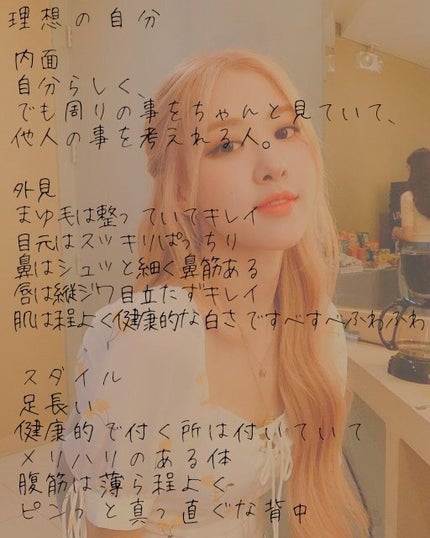 理想の自分
内面
自分らしく、
でも周りの事をちゃんと見ていて、
他人の事を考えれる人。
外見
まゆ毛は整っていてキレイ
目元はスッキリぱっちり
鼻はシュッと細く鼻筋ある
唇は縦ジワ目立たずキレイ
肌は程よく健康的な白さですべすべふわふわ
スタイル
足長い
健康的で付く所は付いていて
メリハリのある体
腹筋は薄ら程よく
ピンっと真っ直ぐな背中